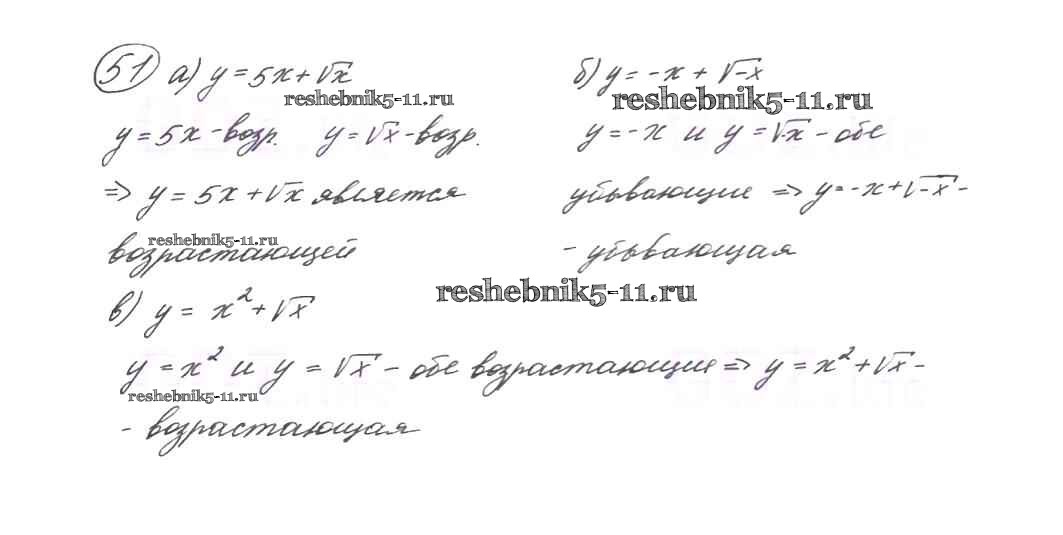 51 а) y = 5x + √x
reshebnik5-11.ru
y = 5x - возр. y = √x - возр.
⇒ y = 5x + √x является
reshebnik5-11.ru
возрастающей
б) y = -x + √-x
reshebnik5-11.ru
y = -x и y = √-x - обе
убывающие ⇒ y = -x + √-x -
- убывающая
reshebnik5-11.ru
в) y = x² + √x
y = x² и y = √x - обе возрастающие ⇒ y = x² + √x -
reshebnik5-11.ru
- возрастающая